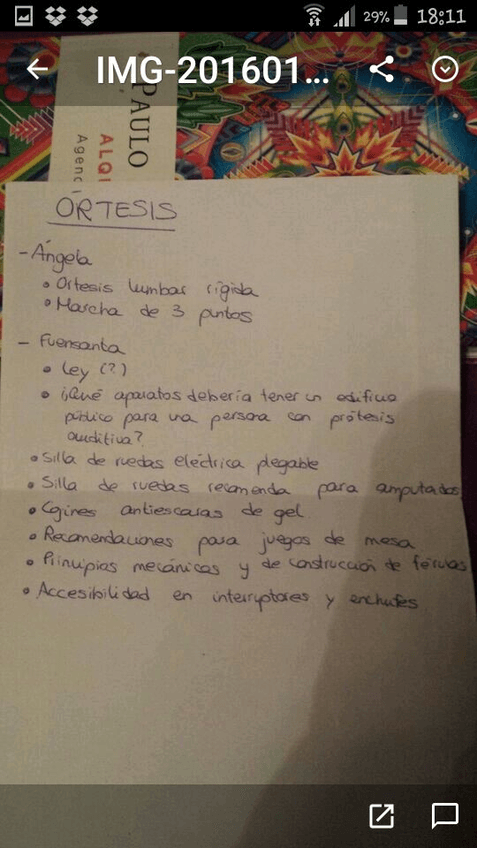 29% 18:11
IMG-201601...
PAULO
ALQU
Agenc
ÓRTESIS
- Ángela
• Ortesis lumbar rígida
• Marcha de 3 puntos
- Fuensanta
• Ley (?)
• ¿Qué aparatos debería tener un edificio
público para una persona con prótesis
auditiva?
• Silla de ruedas eléctrica plegable
• Silla de ruedas recomenda para amputados
• Cojines antiescaras de gel
• Recomendaciones para juegos de mesa
• Principios mecánicos y de construcción de férulas
• Accesibilidad en interruptores y enchufes